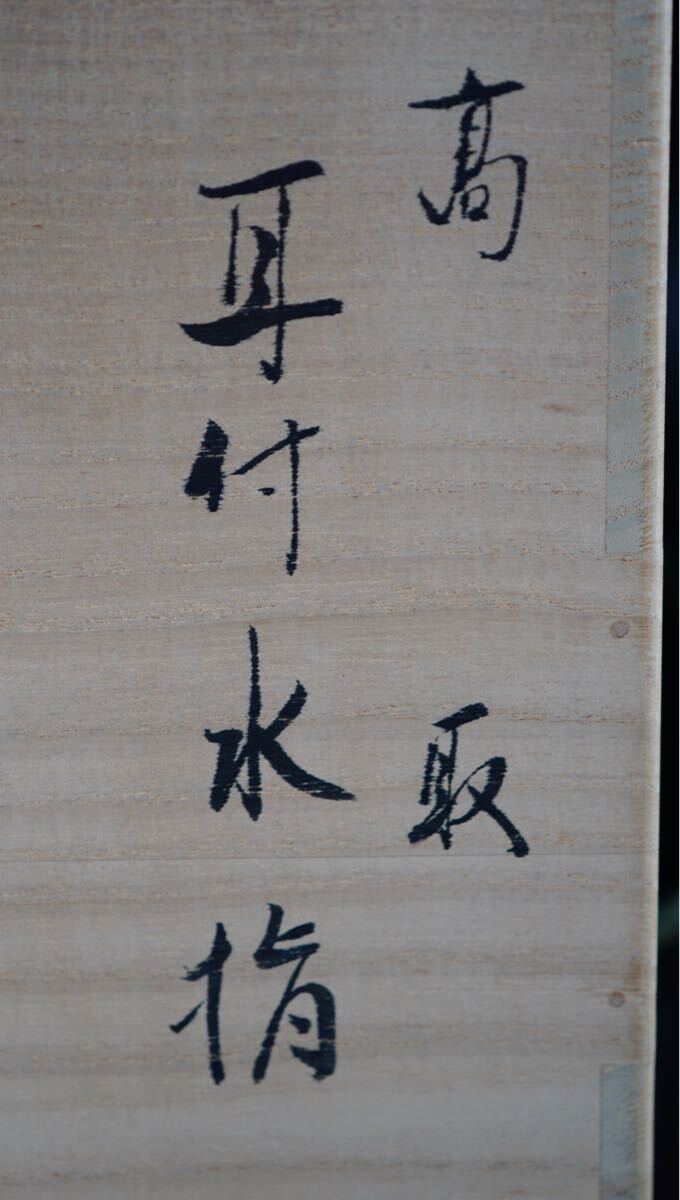 髙取
耳付水指